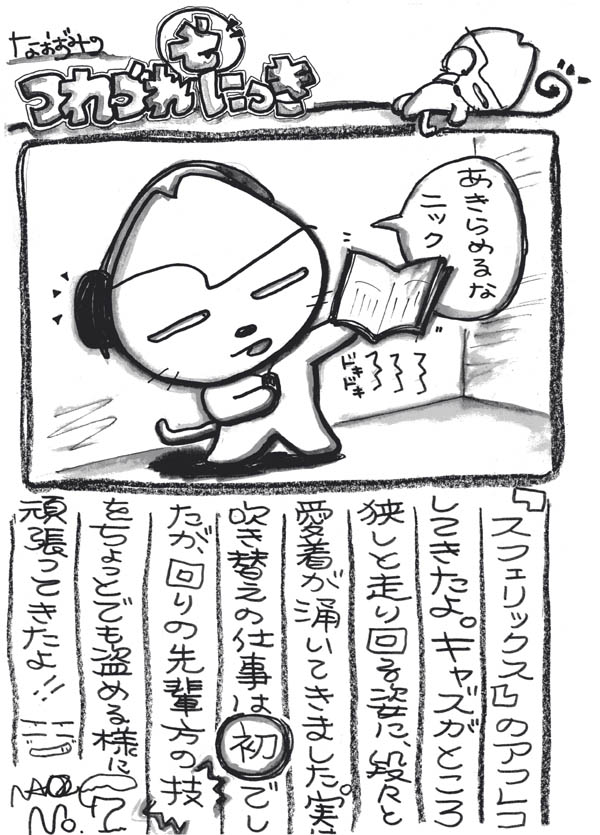 なおぢみの
つれづれもじにっき
あきらめるな
ニック
ドキ
ドキ
『スフェリックス』のアフレコ
してきたよ。キャズがところ
狭しと走り回る姿に、段々と
愛着が涌いてきました。実は
吹き替えの仕事は初でし
たが、回りの先輩方の技
をちょっとでも盗める様に
頑張ってきたよ!!
NAO
No.7